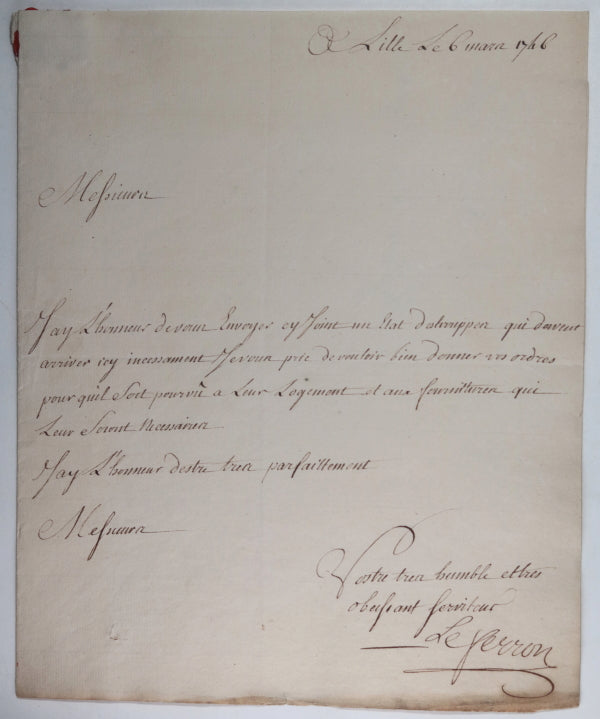 A Lille Le 6 mars 1746
Messieurs
J'ay L'honneur de vous Envoyer cy Joint un Etat des trouppes qui doivent
arriver icy incessament Je vous prie de vouloir bien donner vos ordres
pour quil Soit pourvû a Leur Logement et aux fournitures qui
Leur Seront Necessaires
J'ay L'honneur destre tres parfaittement
Messieurs
Vostre tres humble et tres
obeissant serviteur
Le Perron